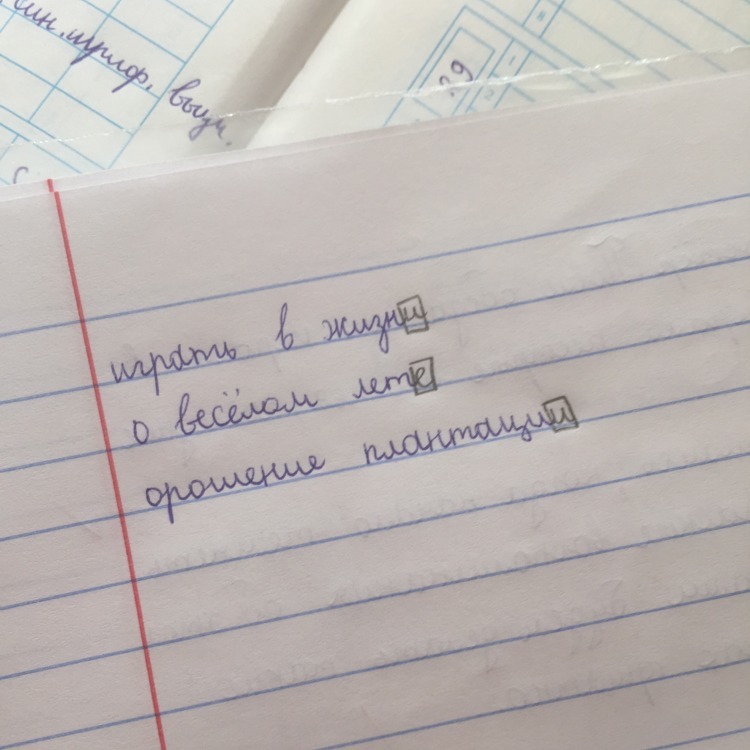 син. шрифт, выун.
29
играть в жизни
о весёлом лете
орошение плантации